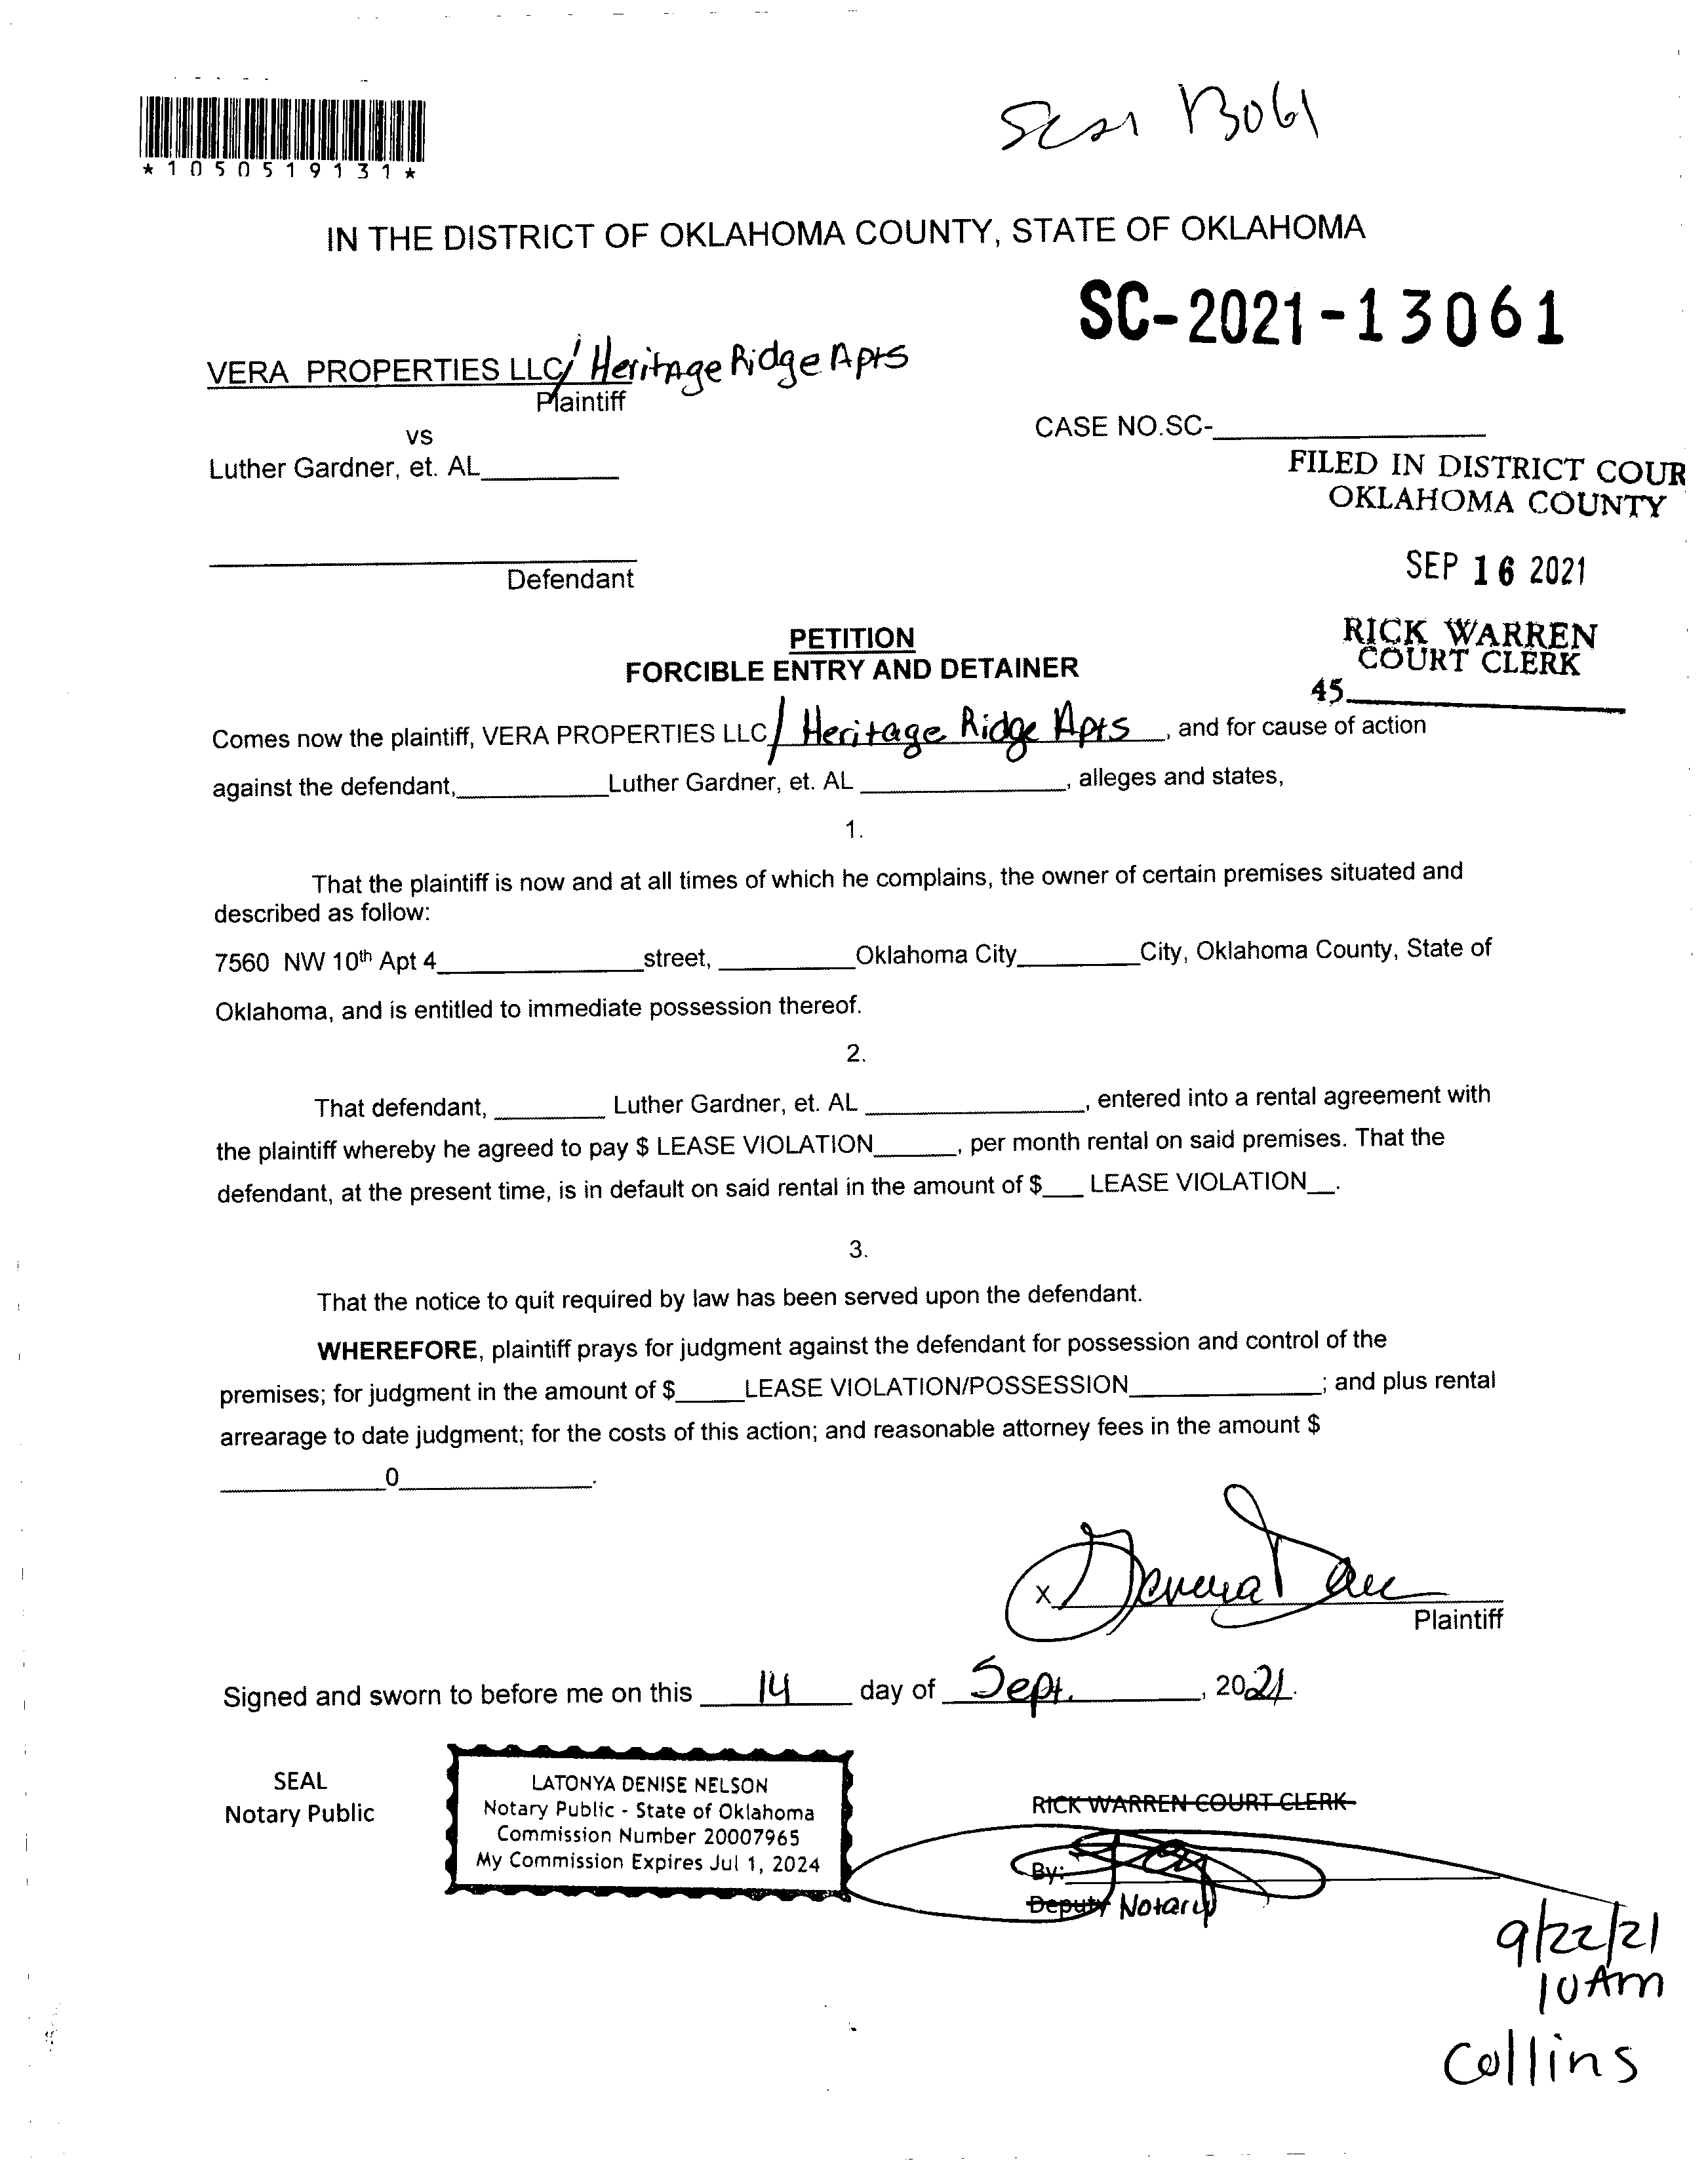 *1050519131*
13061
IN THE DISTRICT OF OKLAHOMA COUNTY, STATE OF OKLAHOMA
SC-2021-13061
VERA PROPERTIES LLC/ Heritage Ridge Apts
Plaintiff
vs
CASE NO.SC-
Luther Gardner, et. AL
FILED IN DISTRICT COUR
OKLAHOMA COUNTY
SEP 16 2021
Defendant
RICK WARREN
COURT CLERK
45
PETITION
FORCIBLE ENTRY AND DETAINER
Comes now the plaintiff, VERA PROPERTIES LLC / Heritage Ridge Apts, and for cause of action
against the defendant, Luther Gardner, et. AL, alleges and states,
1.
That the plaintiff is now and at all times of which he complains, the owner of certain premises situated and
described as follow:
7560 NW 10th Apt 4 street, Oklahoma City City, Oklahoma County, State of
Oklahoma, and is entitled to immediate possession thereof.
2.
That defendant, Luther Gardner, et. AL, entered into a rental agreement with
the plaintiff whereby he agreed to pay $ LEASE VIOLATION, per month rental on said premises. That the
defendant, at the present time, is in default on said rental in the amount of $ LEASE VIOLATION.
3.
That the notice to quit required by law has been served upon the defendant.
WHEREFORE, plaintiff prays for judgment against the defendant for possession and control of the
premises; for judgment in the amount of $ LEASE VIOLATION/POSSESSION; and plus rental
arrearage to date judgment; for the costs of this action; and reasonable attorney fees in the amount $
0.
x
Plaintiff
Signed and sworn to before me on this 14 day of Sept., 2021.
SEAL
Notary Public
LATONYA DENISE NELSON
Notary Public - State of Oklahoma
Commission Number 20007965
My Commission Expires Jul 1, 2024
RICK WARREN COURT CLERK
By:
Deputy Notary
9/22/21
10 Am
Collins